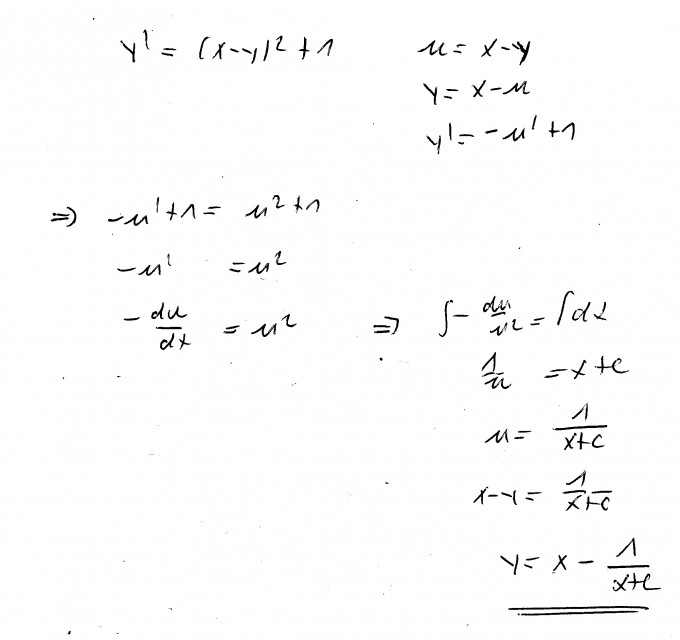 y' = (x-y)² + 1
u = x-y
y = x-u
y' = -u' + 1
⇒ -u' + 1 = u² + 1
-u' = u²
-du/dx = u²
⇒ ∫ - du/u² = ∫ dx
1/u = x + c
u = 1/(x+c)
x-y = 1/(x+c)
y = x - 1/(x+c)